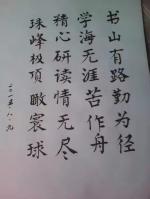 书山有路勤为径
学海无涯苦作舟
精心研读情无尽
珠峰极顶瞰寰球
二〇一五.八.九